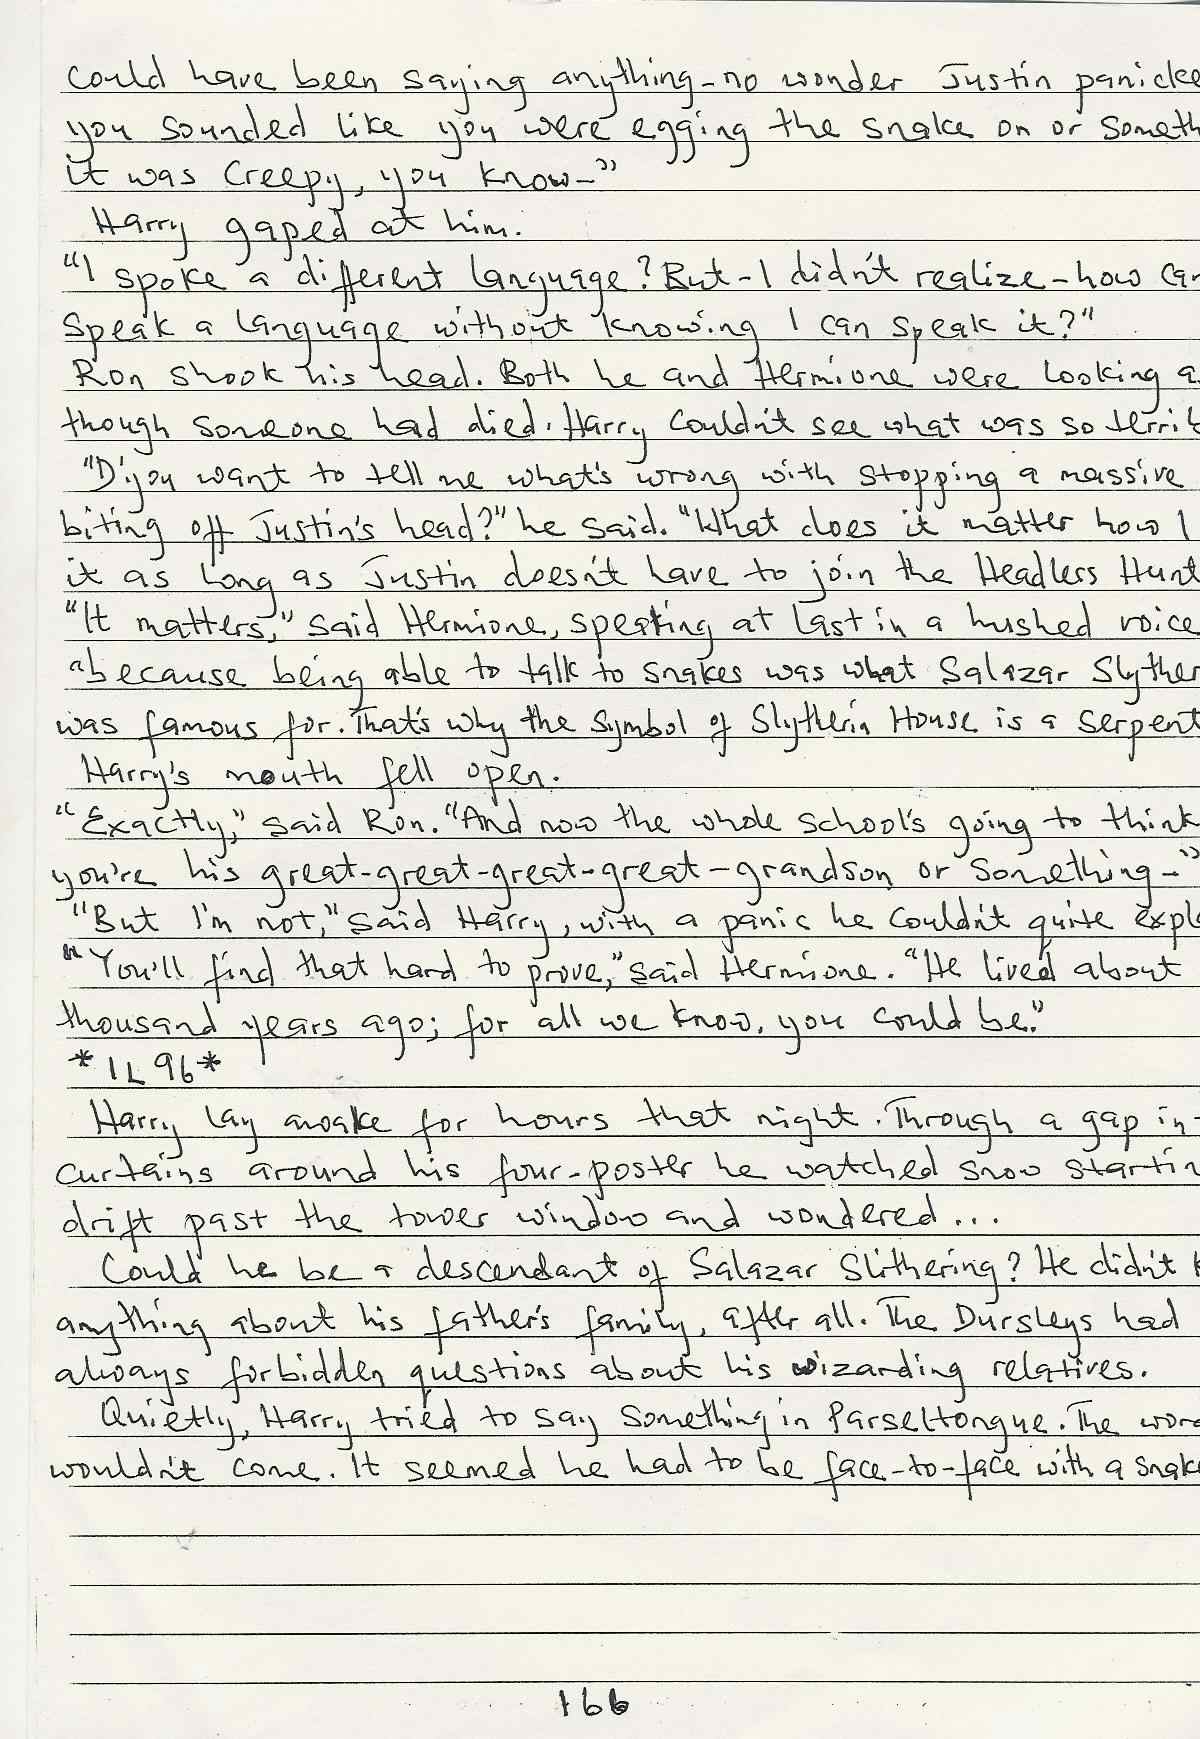 could have been saying anything-no wonder Justin panicke
you sounded like you were egging the snake on or someth
it was creepy, you know-"
Harry gaped at him.
"I spoke a different language? But-I didn't realize-how can
speak a language without knowing I can speak it?"
Ron shook his head. Both he and Hermione were looking a
though someone had died. Harry couldn't see what was so terrib
"D'you want to tell me what's wrong with stopping a massive
biting off Justin's head?" he said. "What does it matter how I
it as long as Justin doesn't have to join the Headless Hunt
"It matters," said Hermione, speaking at last in a hushed voice
"because being able to talk to snakes was what Salazar Slyther
was famous for. That's why the symbol of Slytherin House is a serpent
Harry's mouth fell open.
"Exactly," said Ron. "And now the whole school's going to think
you're his great-great-great-great-grandson or something-"
"But I'm not," said Harry, with a panic he couldn't quite expla
"You'll find that hard to prove," said Hermione. "He lived about
thousand years ago; for all we know, you could be."
*IL 96*
Harry lay awake for hours that night. Through a gap in-
curtains around his four-poster he watched snow startin
drift past the tower window and wondered...
Could he be a descendant of Salazar Slithering? He didn't k
anything about his father's family, after all. The Dursleys had
always forbidden questions about his wizarding relatives.
Quietly, Harry tried to say something in Parseltongue. The word
wouldn't come. It seemed he had to be face-to-face with a snake
166